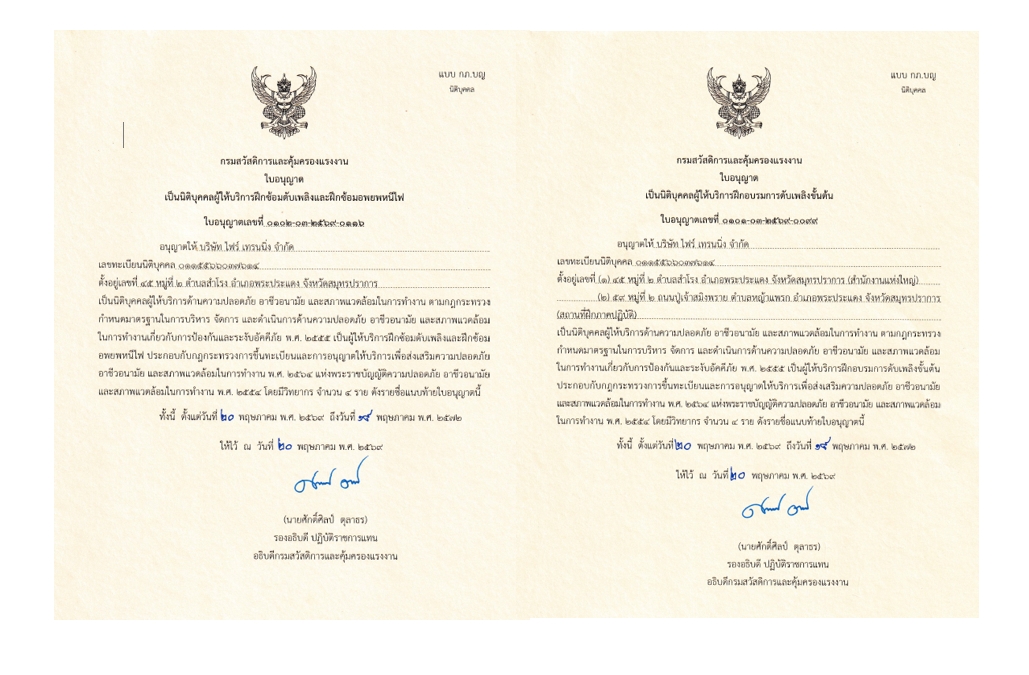 แบบ กภ.บญ
นิติบุคคล
กรมสวัสดิการและคุ้มครองแรงงาน
ใบอนุญาต
เป็นนิติบุคคลผู้ให้บริการฝึกซ้อมดับเพลิงและฝึกซ้อมอพยพหนีไฟ
ใบอนุญาตเลขที่ ๐๑๐๒-๐๓-๒๕๖๙-๐๑๑๖
อนุญาตให้ บริษัท ไฟร์ เทรนนิ่ง จำกัด
เลขทะเบียนนิติบุคคล ๐๑๑๕๕๖๖๐๓๗๖๑๔
ตั้งอยู่เลขที่ ๔๕ หมู่ที่ ๒ ตำบลสำโรง อำเภอพระประแดง จังหวัดสมุทรปราการ
เป็นนิติบุคคลผู้ให้บริการด้านความปลอดภัย อาชีวอนามัย และสภาพแวดล้อมในการทำงาน ตามกฎกระทรวง
กำหนดมาตรฐานในการบริหาร จัดการ และดำเนินการด้านความปลอดภัย อาชีวอนามัย และสภาพแวดล้อม
ในการทำงานเกี่ยวกับการป้องกันและระงับอัคคีภัย พ.ศ. ๒๕๕๕ เป็นผู้ให้บริการฝึกซ้อมดับเพลิงและฝึกซ้อม
อพยพหนีไฟ ประกอบกับกฎกระทรวงการขึ้นทะเบียนและการอนุญาตให้บริการเพื่อส่งเสริมความปลอดภัย
อาชีวอนามัย และสภาพแวดล้อมในการทำงาน พ.ศ. ๒๕๖๔ แห่งพระราชบัญญัติความปลอดภัย อาชีวอนามัย
และสภาพแวดล้อมในการทำงาน พ.ศ. ๒๕๕๔ โดยมีวิทยากร จำนวน ๔ ราย ดังรายชื่อแนบท้ายใบอนุญาตนี้
ทั้งนี้ ตั้งแต่วันที่ ๒๐ พฤษภาคม พ.ศ. ๒๕๖๙ ถึงวันที่ ๑๙ พฤษภาคม พ.ศ. ๒๕๗๒
ให้ไว้ ณ วันที่ ๒๐ พฤษภาคม พ.ศ. ๒๕๖๙
(นายศักดิ์ศิลป์ ตุลาธร)
รองอธิบดี ปฏิบัติราชการแทน
อธิบดีกรมสวัสดิการและคุ้มครองแรงงาน
แบบ กภ.บญ
นิติบุคคล
กรมสวัสดิการและคุ้มครองแรงงาน
ใบอนุญาต
เป็นนิติบุคคลผู้ให้บริการฝึกอบรมการดับเพลิงขั้นต้น
ใบอนุญาตเลขที่ ๐๑๐๑-๐๓-๒๕๖๙-๐๐๙๙
อนุญาตให้ บริษัท ไฟร์ เทรนนิ่ง จำกัด
เลขทะเบียนนิติบุคคล ๐๑๑๕๕๖๖๐๓๗๖๑๔
ตั้งอยู่เลขที่ (๑) ๔๕ หมู่ที่ ๒ ตำบลสำโรง อำเภอพระประแดง จังหวัดสมุทรปราการ (สำนักงานแห่งใหญ่)
(๒) ๕๙ หมู่ที่ ๒ ถนนปู่เจ้าสมิงพราย ตำบลหญ้าแพรก อำเภอพระประแดง จังหวัดสมุทรปราการ
(สถานที่ฝึกภาคปฏิบัติ)
เป็นนิติบุคคลผู้ให้บริการด้านความปลอดภัย อาชีวอนามัย และสภาพแวดล้อมในการทำงาน ตามกฎกระทรวง
กำหนดมาตรฐานในการบริหาร จัดการ และดำเนินการด้านความปลอดภัย อาชีวอนามัย และสภาพแวดล้อม
ในการทำงานเกี่ยวกับการป้องกันและระงับอัคคีภัย พ.ศ. ๒๕๕๕ เป็นผู้ให้บริการฝึกอบรมการดับเพลิงขั้นต้น
ประกอบกับกฎกระทรวงการขึ้นทะเบียนและการอนุญาตให้บริการเพื่อส่งเสริมความปลอดภัย อาชีวอนามัย
และสภาพแวดล้อมในการทำงาน พ.ศ. ๒๕๖๔ แห่งพระราชบัญญัติความปลอดภัย อาชีวอนามัย และสภาพแวดล้อม
ในการทำงาน พ.ศ. ๒๕๕๔ โดยมีวิทยากร จำนวน ๔ ราย ดังรายชื่อแนบท้ายใบอนุญาตนี้
ทั้งนี้ ตั้งแต่วันที่ ๒๐ พฤษภาคม พ.ศ. ๒๕๖๙ ถึงวันที่ ๑๙ พฤษภาคม พ.ศ. ๒๕๗๒
ให้ไว้ ณ วันที่ ๒๐ พฤษภาคม พ.ศ. ๒๕๖๙
(นายศักดิ์ศิลป์ ตุลาธร)
รองอธิบดี ปฏิบัติราชการแทน
อธิบดีกรมสวัสดิการและคุ้มครองแรงงาน